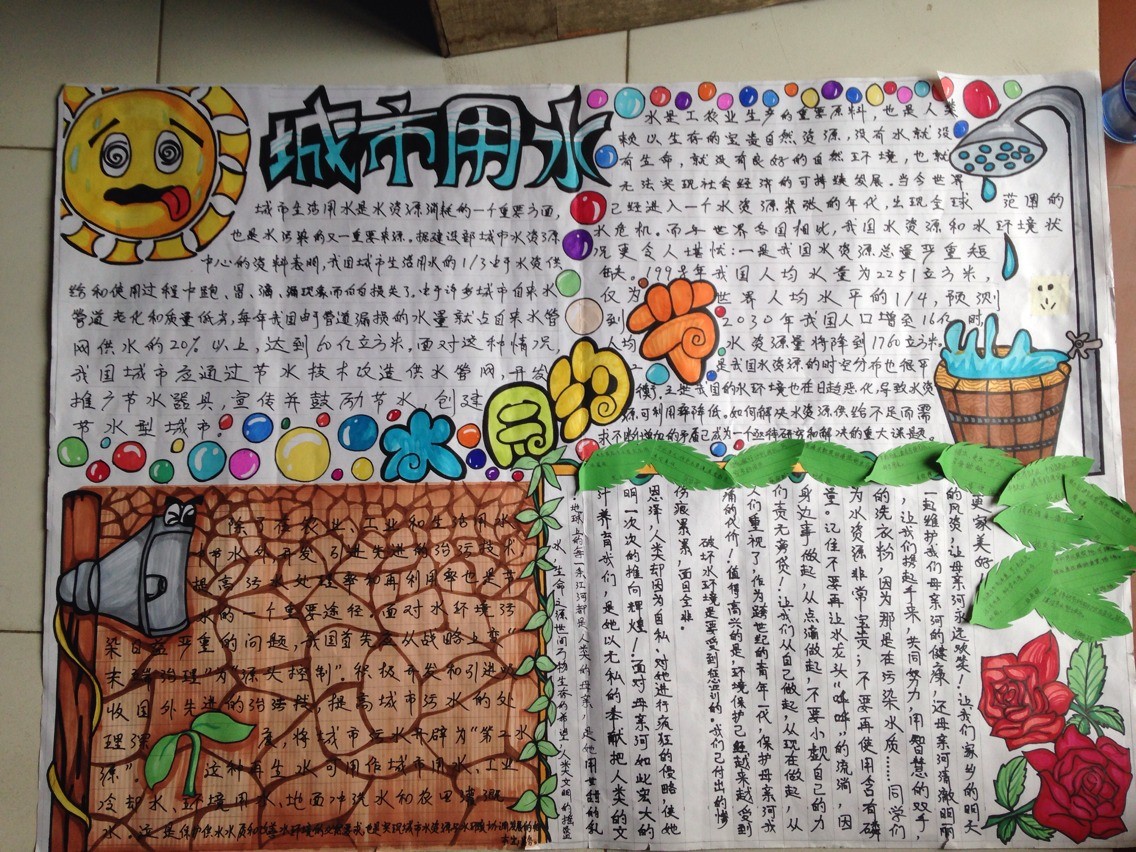 城市用水
城市生活用水是水资源消耗的一个重要方面，
也是水污染的又一重要来源。据建设部城市水资源
中心的资料表明，我国城市生活用水的1/3由于水资供
给和使用过程中跑、冒、滴、漏现象而白白损失了。由于许多城市自来水
管道老化和质量低劣，每年我国由于管道漏损的水量就占自来水管
网供水的20%以上，达到60亿立方米。面对这种情况，
我国城市应通过节水技术改造供水管网，开发
推广节水器具，宣传并鼓励节水，创建
节水型城市。
水是工农业生产的重要原料，也是人类
赖以生存的宝贵自然资源，没有水就没
有生命，就没有良好的自然环境，也就
无法实现社会经济的可持续发展。当今世界
已经进入一个水资源紧张的年代，出现全球范围的
水危机。而与世界各国相比，我国水资源和水环境状
况更令人堪忧：一是我国水资源总量严重短
缺。1998年我国人均水量为2251立方米，
仅为世界人均水平的1/4，预测
到2030年我国人口增至16亿时，
人均水资源量将降到1760立方米。
二是我国水资源的时空分布也很不
衡，三是我国的水环境也在日趋恶化，导致水资
源可利用率降低。如何解决水资源供给不足而需
求不断增加的矛盾已成为一个亟待研究和解决的重大课题。
节约用水
除了在农业、工业和生活用水
节水外，开发引进先进的治污技术，
提高污水处理率和再利用率也是节
水的一个重要途径。面对水环境污
染日益严重的问题，我国首先应从战略上变
"末端治理"为"源头控制"。积极开发和引进吸
收国外先进的治污技，提高城市污水的处
理深度，将城市污水开辟为"第二水
源"。这种再生水可用作城市用水、工业
冷却水、环境用水、地面冲洗水和农田灌溉
水。这是保护供水水质和改善水环境的必然要求，也是实现城市水资源与水环境协调发展的
更家美好
的风资，让母亲河永远欢笑！让我们家乡的明天
一起维护我们母亲河的健康，还母亲河清澈明丽
，让我们携起手来，共同努力，用智慧的双手，
的洗衣粉，因为那是在污染水质……同学们
为水资源非常宝贵；不要再使用含有磷
量。记住不要再让水龙头"哗哗"的流淌，因
身边事做起，从点滴做起，不要小觑自己的力
们责无旁贷！让我们从自己做起，从现在做起，从
人们重视了，作为跨世纪的青年一代，保护母亲河我
痛的代价！值得高兴的是，环境保护已经越来越受到
破坏水环境是要受到惩罚的。我们已付出的惨
伤痕累累，面目全非。
恩泽，人类却因为自私，对她进行疯狂的侵略，使她
明一次次的推向辉煌！面对母亲河如此宏大的
汁养育我们，是她以无私的奉献把人类的文
地球上的每一条江河都是人类的母亲，是她用甘甜的乳
水，生命之源，世间万物生存的希望，人类文明的摇篮